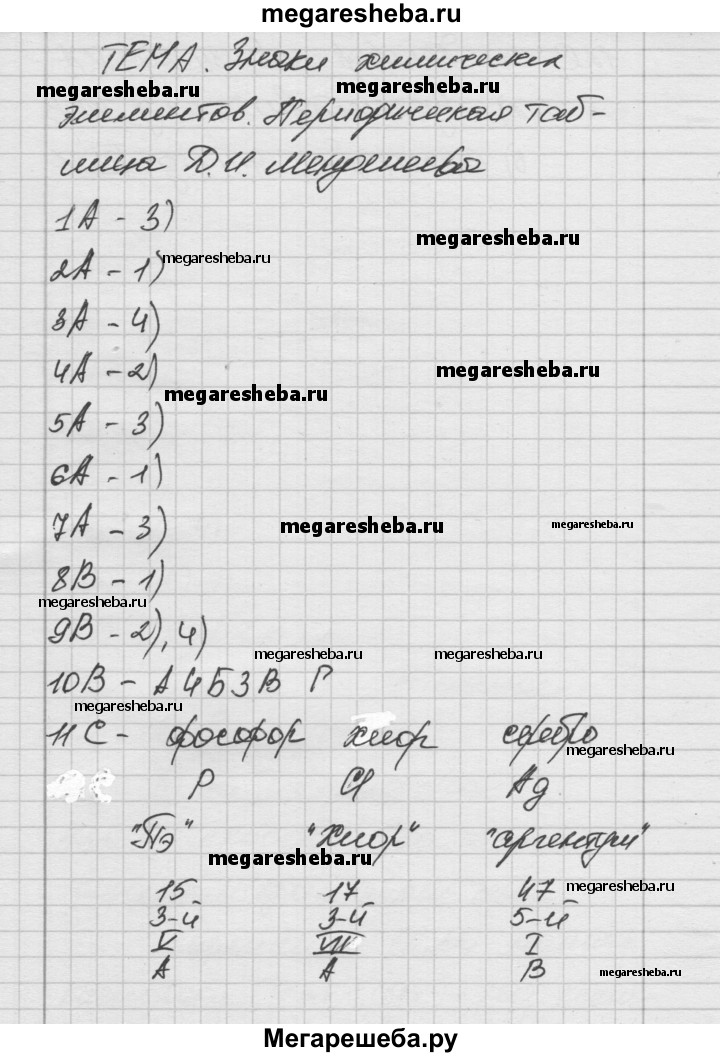 megaresheba.ru
ТЕМА. Знаки химических
megaresheba.ru megaresheba.ru
элементов. Периодическая таб-
лица Д.И. Менделеева
1А - 3)
megaresheba.ru
megaresheba.ru
2А - 1)
3А - 4)
4А - 2)
megaresheba.ru
megaresheba.ru
5А - 3)
6А - 1)
7А - 3)
megaresheba.ru megaresheba.ru
8В - 1)
megaresheba.ru
9В - 2), 4)
megaresheba.ru megaresheba.ru
10В - А4Б3В Г
megaresheba.ru
11С - фосфор хлор серебро
megaresheba.ru
P Cl Ag
"Пэ" "Хлор" "аргентум"
megaresheba.ru
15 17 47
megaresheba.ru
3-й 3-й 5-й
V VII I
А А В
megaresheba.ru
Мегарешеба.ру